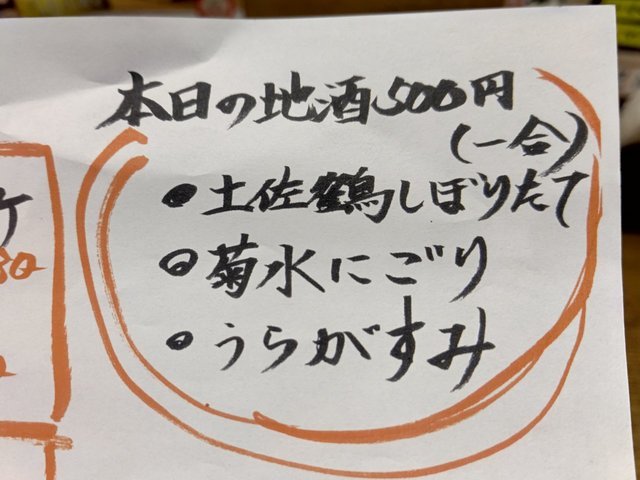 本日の地酒500円
(一合)
•土佐鶴しぼりたて
•菊水にごり
•うらがすみ
ケ
80